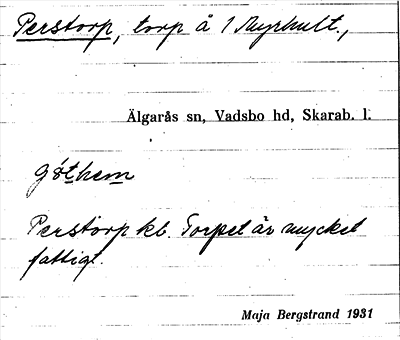 Perstorp, torp å 1 Myrhult.,
Älgarås sn, Vadsbo hd, Skarab. l.
Göthem
Perstorp kb. Torpet är mycket
fattigt.
Maja Bergstrand 1931